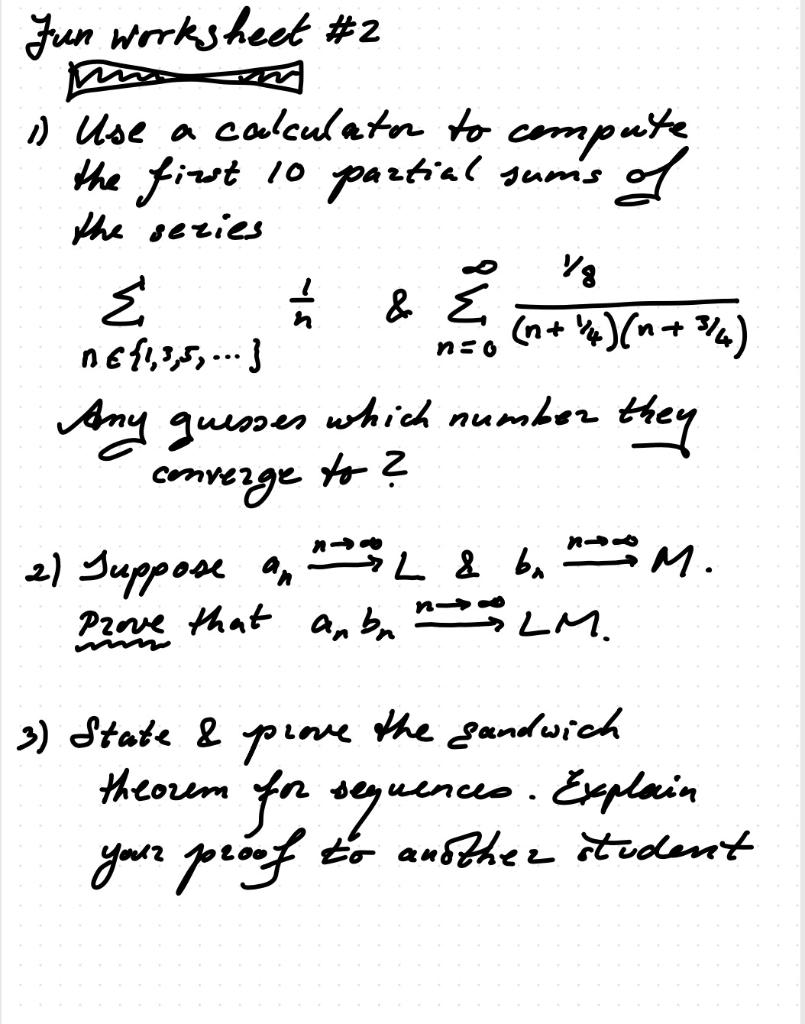 Fun worksheet #2
1) Use a calculator to compute
the first 10 partial sums of
the series
∑_{n ∈ {1,3,5,...}} 1/n & ∑_{n=0}^{∞} (1/8)/((n + 1/4)(n + 3/4))
Any guesses which number they
converge to?
2) Suppose aₙ --n→∞--> L & bₙ --n→∞--> M.
Prove that aₙ bₙ --n→∞--> LM.
3) State & prove the sandwich
theorem for sequences. Explain
your proof to another student